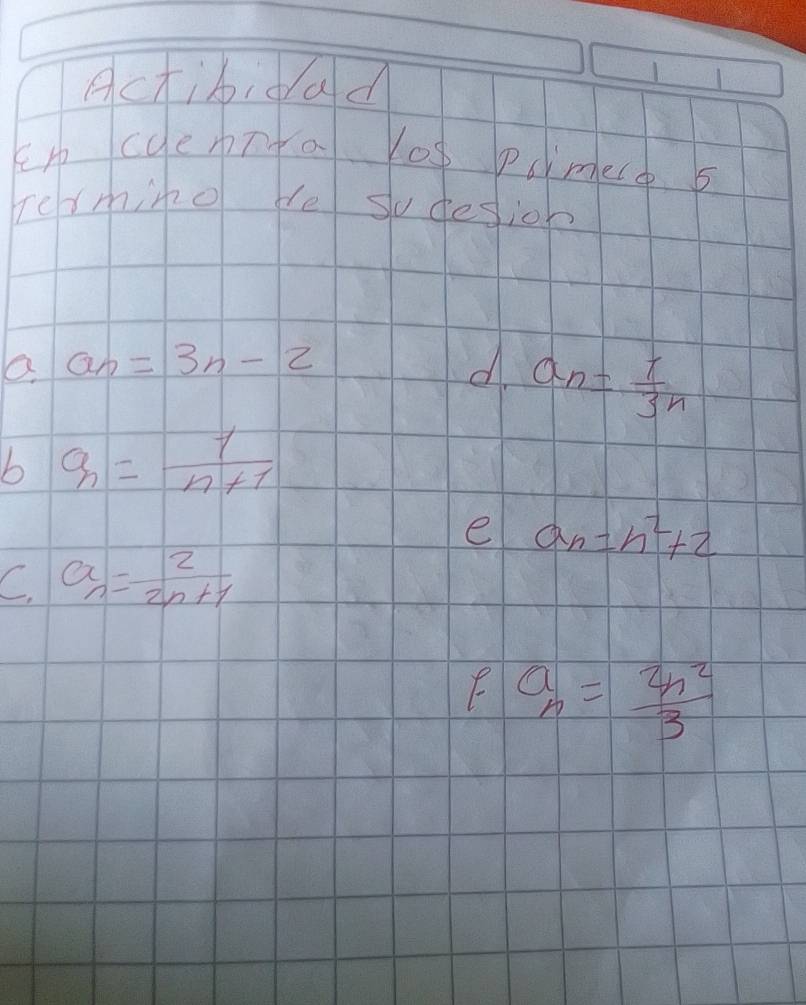 Actibidad
En cuentra los Primero 5
Termino de sucesion
a. an = 3n - 2
b an = 1/n+1
c. an = 2/2n+1
d. an = 1/3n
e an = n²+2
f. an = 2n²/3